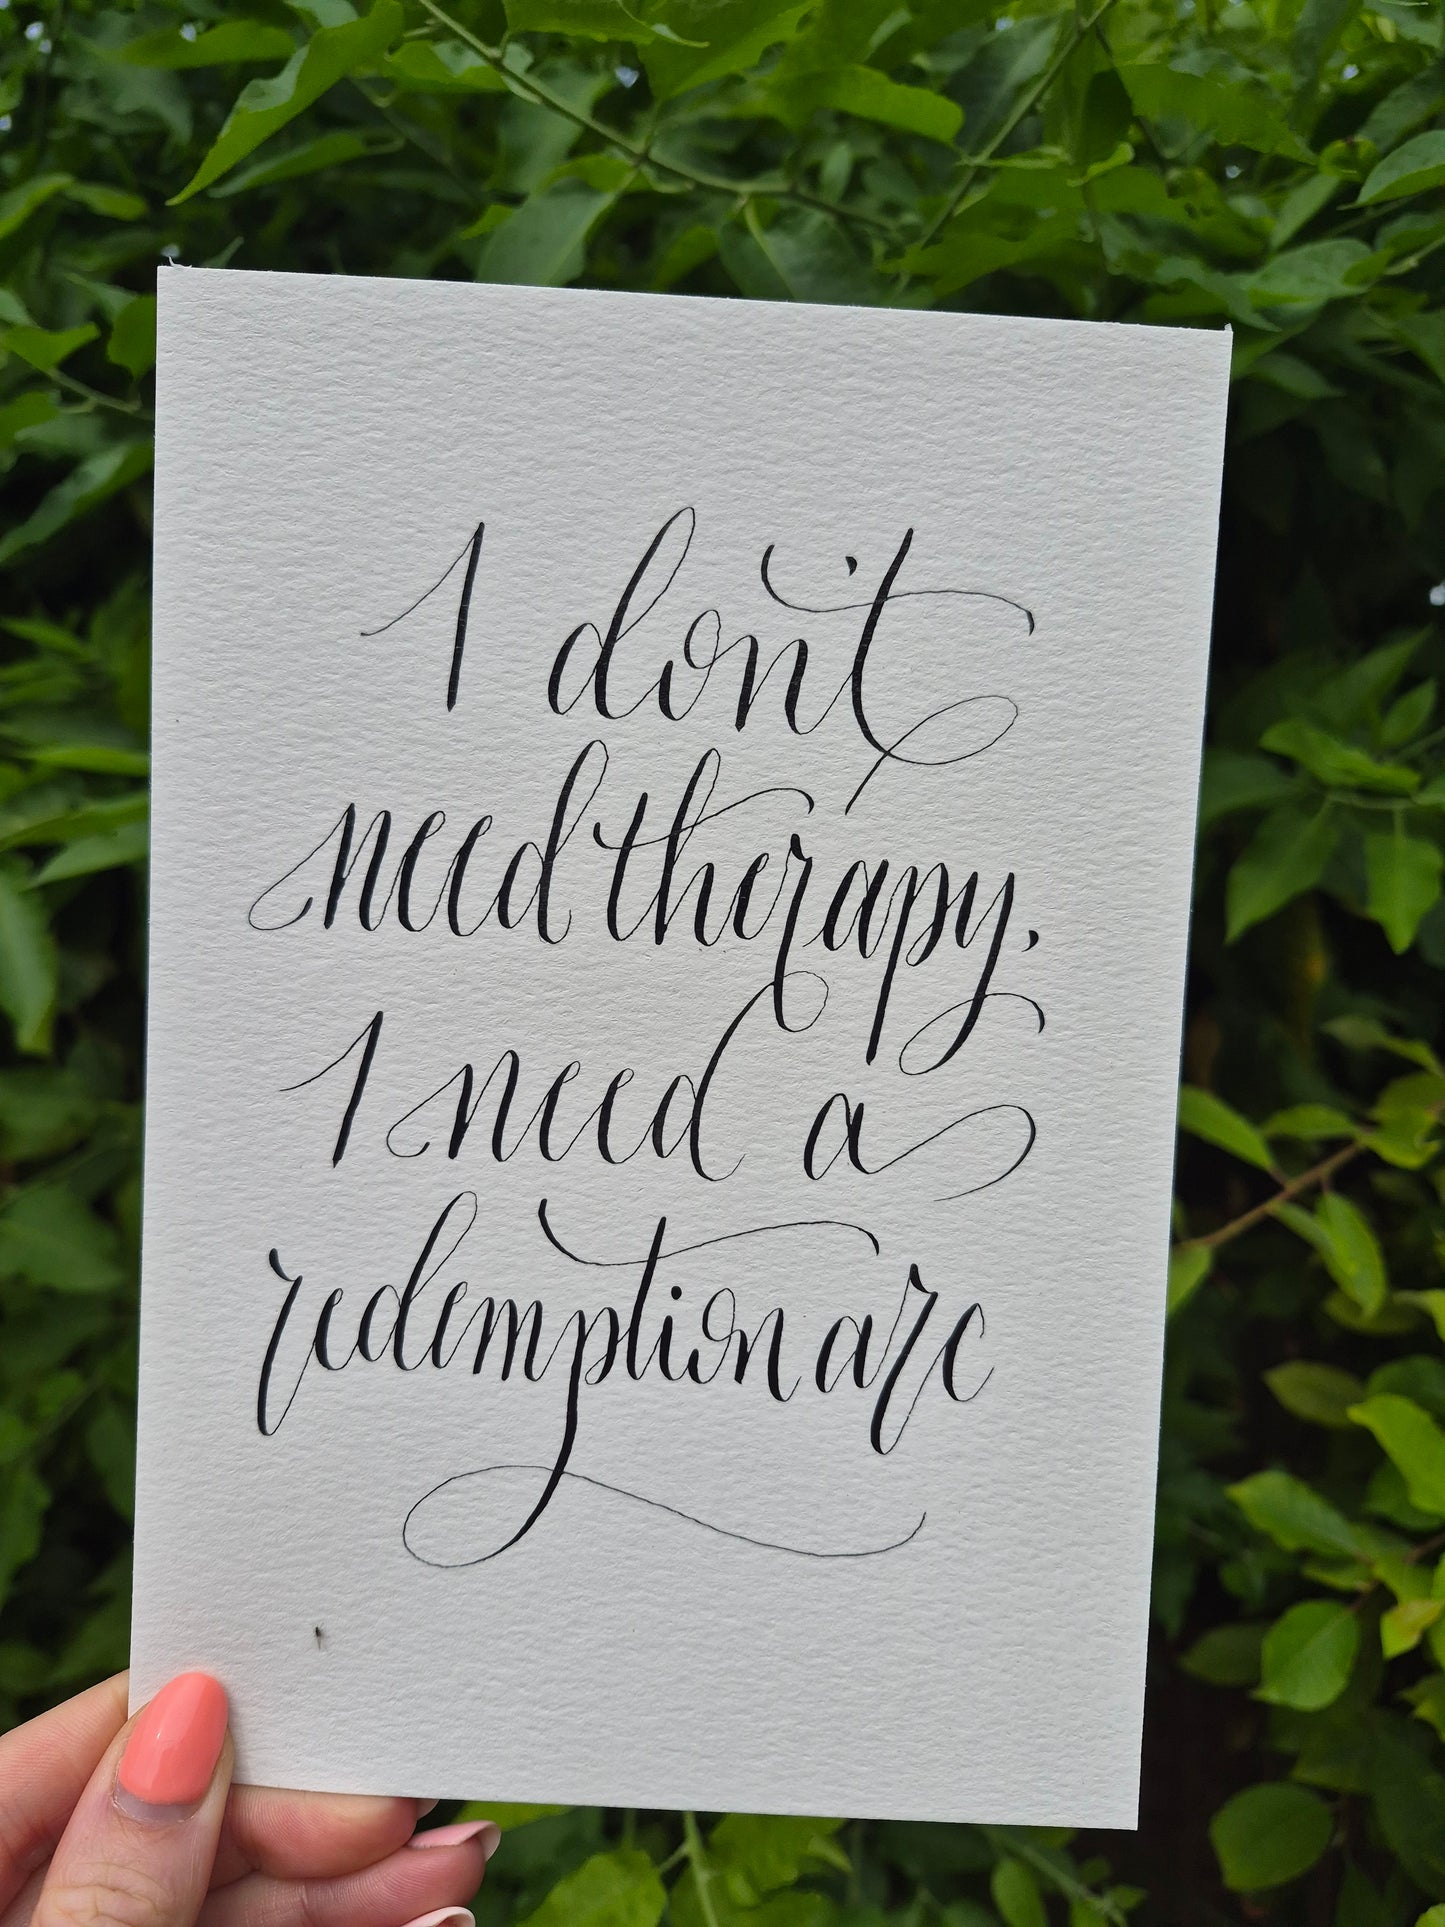 I don't
need therapy.
I need a
redemption arc